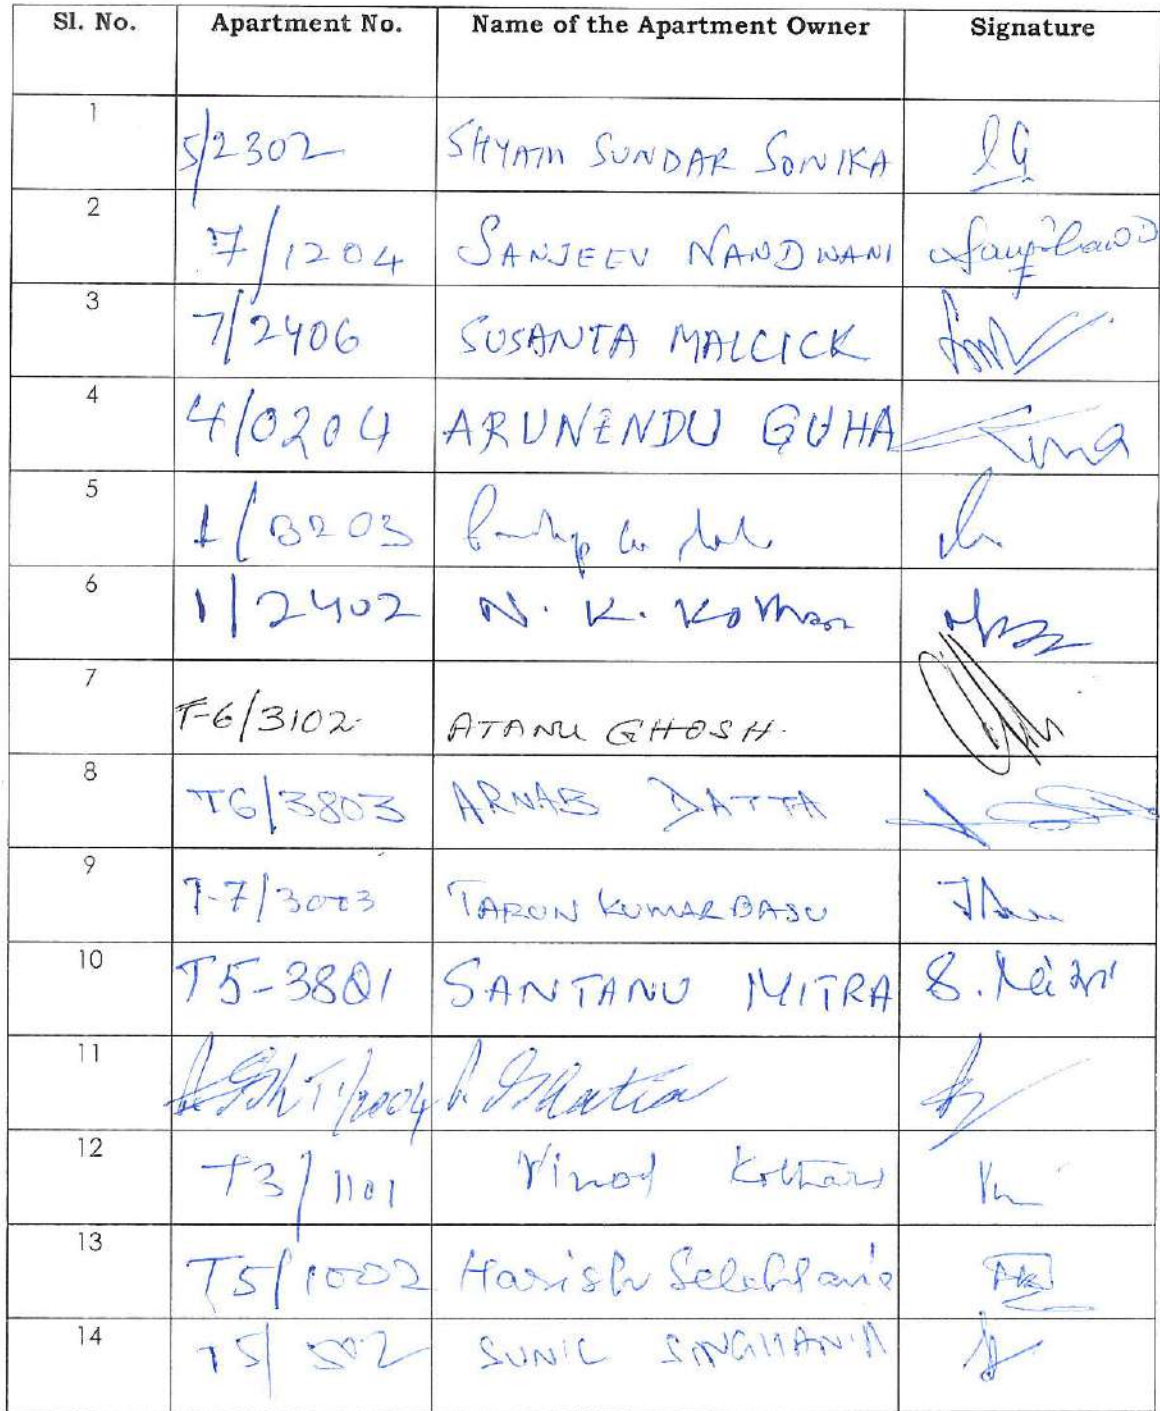 Sl. No. Apartment No. Name of the Apartment Owner Signature
1 5/2302 SHYAM SUNDAR SONIKA
2 7/1204 SANJEEV NANDWANI
3 7/2406 SUSANTA MALLICK
4 4/0204 ARUNENDU GUHA
5 1/B203
6 1/2402 N. K. Kothari
7 T-6/3102 ATANU GHOSH.
8 T6/3803 ARNAB DATTA
9 T-7/3003 TARUN KUMAR BASU
10 T5-3801 SANTANU MITRA S.
11 T1/2004
12 T3/1101 Vinod Kothari
13 T5/1002 Harish
14 T5/502 SUNIL SINGHANIA